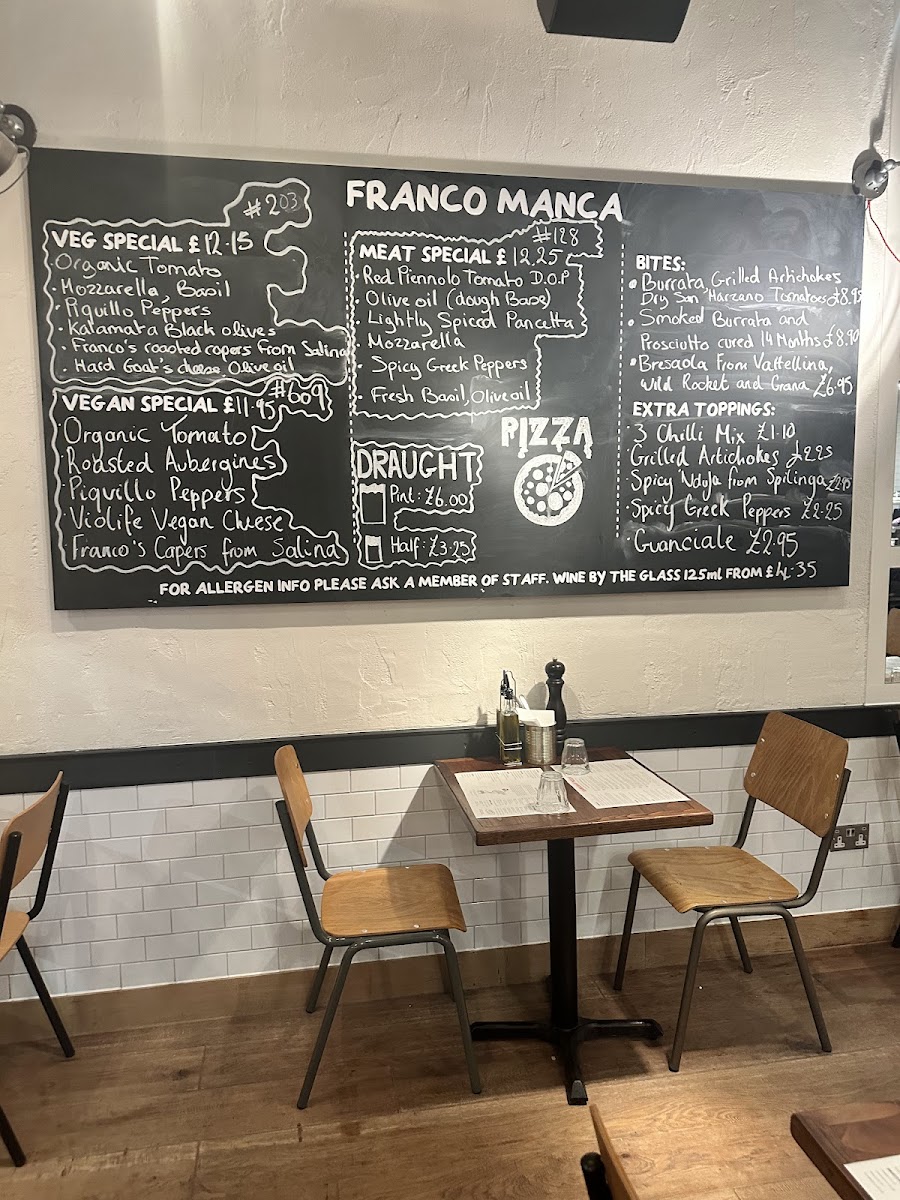 FRANCO MANCA
#203
VEG SPECIAL £12.15
Organic Tomato
· Mozzarella, Basil
· Piquillo Peppers
· Kalamata Black olives
· Franco's roasted capers from Salina
· Hard Goat's cheese Olive oil
#609
VEGAN SPECIAL £11.95
· Organic Tomato
· Roasted Aubergines
· Piquillo Peppers
· Violife Vegan Cheese
· Franco's Capers from Salina
#128
MEAT SPECIAL £12.25
· Red Piennolo Tomato D.O.P
· Olive oil (dough Base)
· Lightly Spiced Pancetta
Mozzarella
· Spicy Greek Peppers
· Fresh Basil, Olive oil
DRAUGHT
Pint: £6.00
Half: £3.25
PIZZA
BITES:
• Burrata, Grilled Artichokes
Dry San Marzano Tomatoes £8.95
• Smoked Burrata and
Prosciutto cured 14 Months £8.90
• Bresaola From Valtellina,
Wild Rocket and Grana £6.95
EXTRA TOPPINGS:
· 3 Chilli Mix £1.10
· Grilled Artichokes £2.25
· Spicy Nduja from Spilinga £2.95
· Spicy Greek Peppers £2.25
· Guanciale £2.95
FOR ALLERGEN INFO PLEASE ASK A MEMBER OF STAFF. WINE BY THE GLASS 125ml FROM £4.35